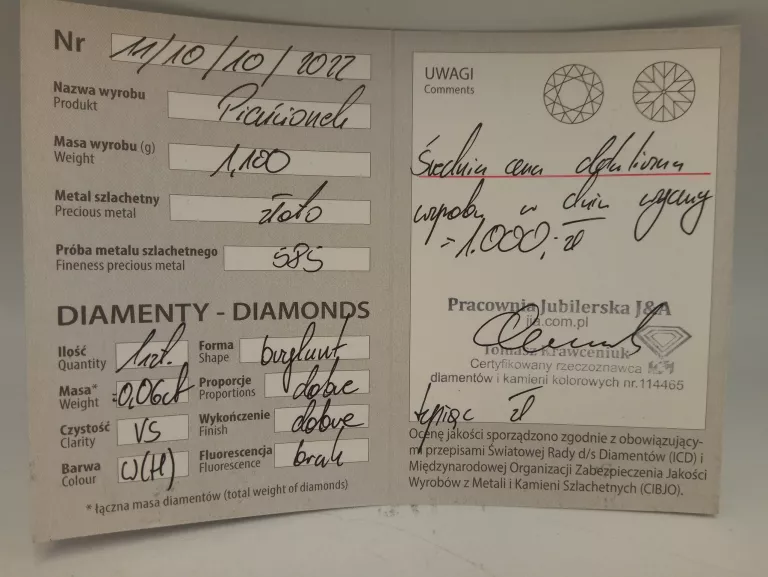 Nr 11/10/10/2022
Nazwa wyrobu
Produkt
Pierścionek
Masa wyrobu (g)
Weight
1,100
Metal szlachetny
Precious metal
złoto
Próba metalu szlachetnego
Fineness precious metal
585
DIAMENTY - DIAMONDS
Ilość
Quantity
1szt.
Forma
Shape
brylant
Masa*
Weight
=0,06ct
Proporcje
Proportions
dobre
Czystość
Clarity
VS
Wykończenie
Finish
dobre
Barwa
Colour
W(H)
Fluorescencja
Fluorescence
brak
* łączna masa diamentów (total weight of diamonds)
UWAGI
Comments
Średnia cena detaliczna
wyrobu w dniu wyceny
=1.000,- zł
Pracownia Jubilerska J&A
jia.com.pl
Tomasz Krawceniuk
Certyfikowany rzeczoznawca
diamentów i kamieni kolorowych nr.114465
tysiąc zł
Ocenę jakości sporządzono zgodnie z obowiązujący-
mi przepisami Światowej Rady d/s Diamentów (ICD) i
Międzynarodowej Organizacji Zabezpieczenia Jakości
Wyrobów z Metali i Kamieni Szlachetnych (CIBJO).